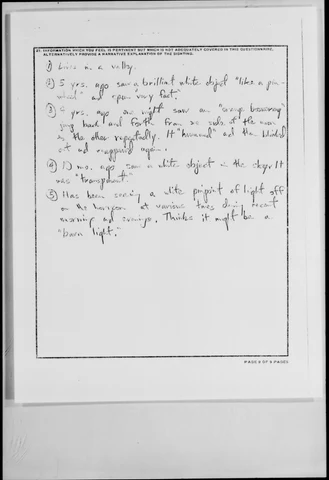 21. INFORMATION WHICH YOU FEEL IS PERTINENT BUT WHICH IS NOT ADEQUATELY COVERED IN THIS QUESTIONNAIRE.
ALTERNATIVELY PROVIDE A NARRATIVE EXPLANATION OF THE SIGHTING.
① Lives in a valley.
② 5 yrs. ago saw a brilliant white object "like a pin-
wheel" and spun "very fast".
③ yrs. ago one night saw an "orange boomerang"
going back and forth from one side of the moon
to the other repeatedly. It "hovered" and then blinked
out and reappeared again.
④ 10 mo. ago saw a white object in the sky. It
was "transparent"
⑤ Has been seeing a white pinpoint of light off
on the horizon at various times during recent
mornings and evenings. Thinks it might be a
"barn light."
PAGE 5 OF 5 PAGES